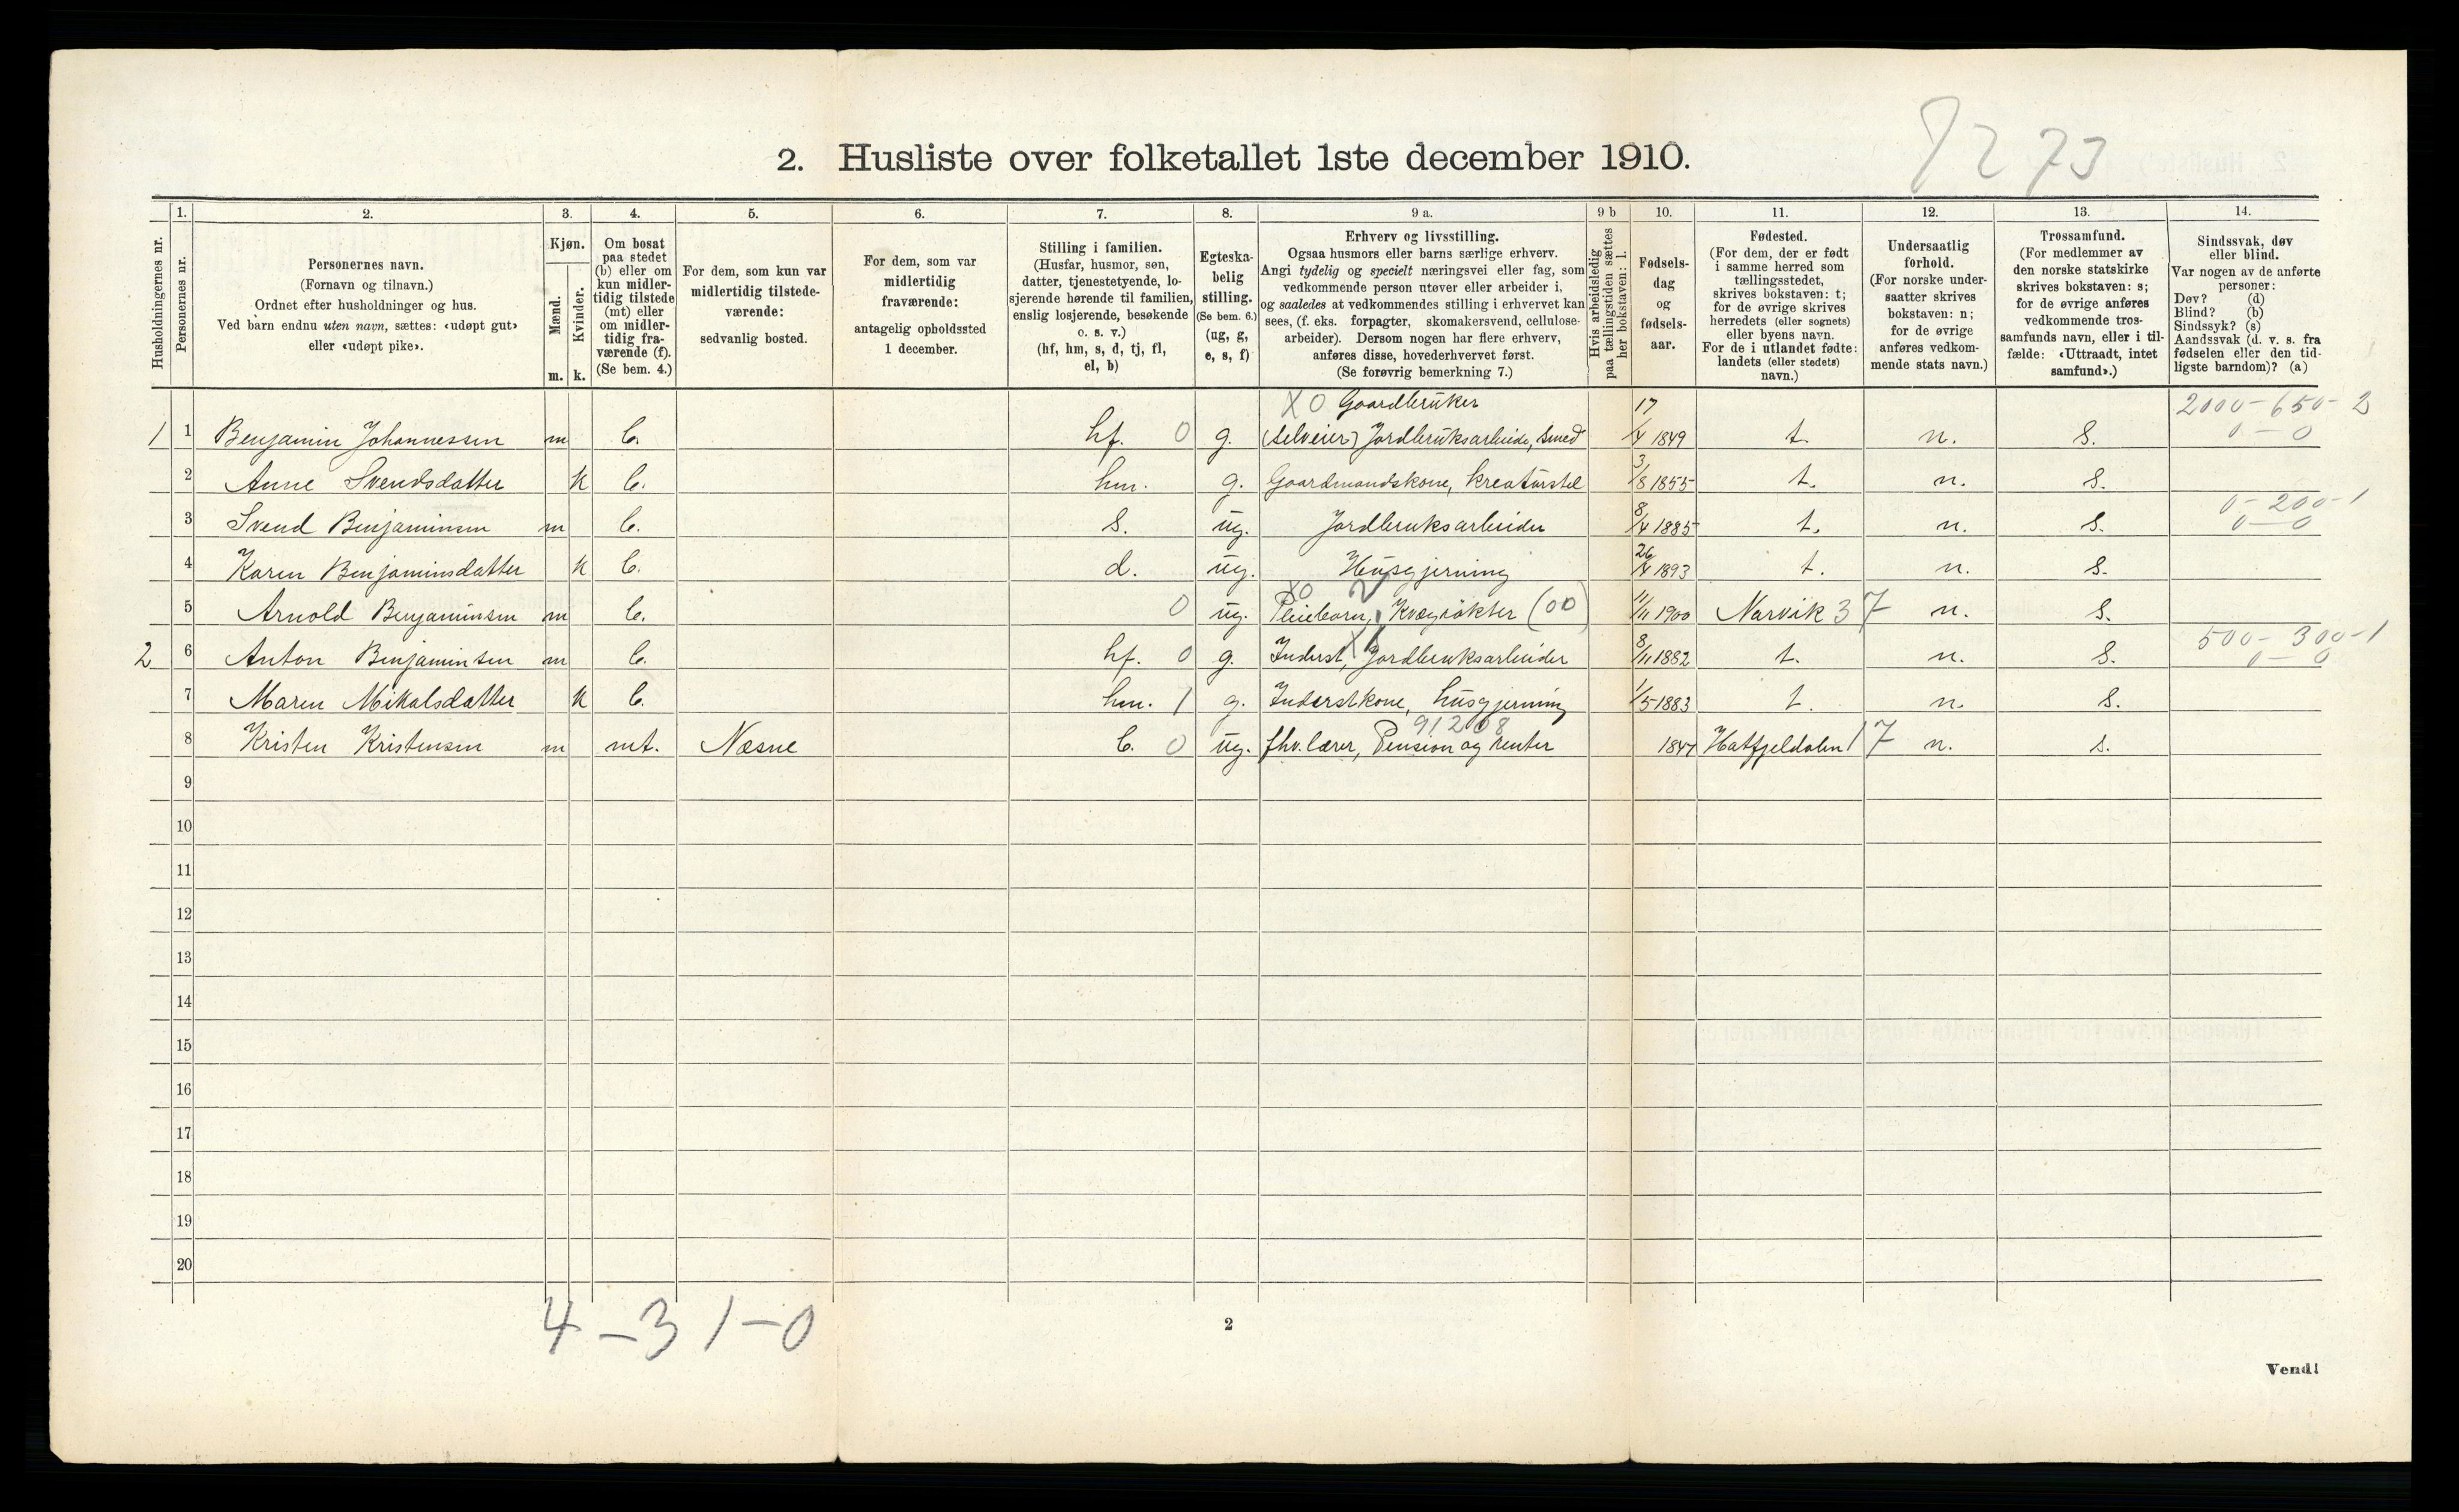 8273
2. Husliste over folketallet 1ste december 1910.
Husholdningernes nr.
1.
Personernes nr.
2.
Personernes navn.
(Fornavn og tilnavn.)
Ordnet efter husholdninger og hus.
Ved barn endnu uten navn, sættes: «udøpt gut»
eller «udøpt pike».
3.
Kjøn.
Mænd.
Kvinder.
m. k.
4.
Om bosat
paa stedet
(b) eller om
kun midler-
tidig tilstede
(mt) eller
om midler-
tidig fra-
værende (f).
(Se bem. 4.)
5.
For dem, som kun var
midlertidig tilstede-
værende:
sedvanlig bosted.
6.
For dem, som var
midlertidig
fraværende:
antagelig opholdssted
1 december.
7.
Stilling i familien.
(Husfar, husmor, søn,
datter, tjenestetyende, lo-
sjerende hørende til familien,
enslig losjerende, besøkende
o. s. v.)
(hf, hm, s, d, tj, fl,
el, b)
8.
Egteska-
belig
stilling.
(Se bem. 6.)
(ug, g,
e, s, f)
9 a.
Erhverv og livsstilling.
Ogsaa husmors eller barns særlige erhverv.
Angi tydelig og specielt næringsvei eller fag, som
vedkommende person utøver eller arbeider i,
og saaledes at vedkommendes stilling i erhvervet kan
sees, (f. eks. forpagter, skomakersvend, cellulose-
arbeider). Dersom nogen har flere erhverv,
anføres disse, hovederhvervet først.
(Se forøvrig bemerkning 7.)
9 b
Hvis arbeidsledig
paa tællingstiden sættes
her bokstaven: l.
10.
Fødsels-
dag
og
fødsels-
aar.
11.
Fødested.
(For dem, der er født
i samme herred som
tællingsstedet,
skrives bokstaven: t;
for de øvrige skrives
herredets (eller sognets)
eller byens navn.
For de i utlandet fødte:
landets (eller stedets)
navn.)
12.
Undersaatlig
forhold.
(For norske under-
saatter skrives
bokstaven: n;
for de øvrige
anføres vedkom-
mende stats navn.)
13.
Trossamfund.
(For medlemmer av
den norske statskirke
skrives bokstaven: s;
for de øvrige anføres
vedkommende tros-
samfunds navn, eller i til-
fælde: «Uttraadt, intet
samfund».)
14.
Sindssvak, døv
eller blind.
Var nogen av de anførte
personer:
Døv? (d)
Blind? (b)
Sindssyk? (s)
Aandssvak (d. v. s. fra
fødselen eller den tid-
ligste barndom)? (a)
X0 Gaardbruker 2000-650-2
1 1 Benjamin Johannessen m b. hf. 0 g. (selveier) Jordbruksarbeide, smed 17/4 1849 t. n. S. 0-0
2 Anne Svendsdatter k b. hm. g. Gaardmandskone, kreaturstel 3/8 1855 t. n. S.
0-200-1
3 Svend Benjaminsen m b. S. ug. Jordbruksarbeider 8/4 1885 t. n. S. 0-0
4 Karen Benjaminsdatter k b. d. ug. Husgjerning 26/4 1893 t. n. S.
X0
5 Arnold Benjaminsen m b. 0 ug. Pleiebarn, Kvægrøkter (00) 11/11 1900 Narvik 37 n. S.
500-300-1
2 6 Anton Benjaminsen m b. hf. 0 g. Inderst, Jordbruksarbeider 8/11 1882 t. n. S. 0-0
7 Maren Mikalsdatter k b. hm. 1 g. Inderstkone, husgjerning 1/5-1883 t. n. S.
91208
8 Kristen Kristensen m mt. Næsne b. 0 ug. fhv. lærer, Pension og renter 1847 Hatfjeldalen 17 n. S.
9
10
11
12
13
14
15
16
17
18
19
20
4-3 1-0
2
Vend!